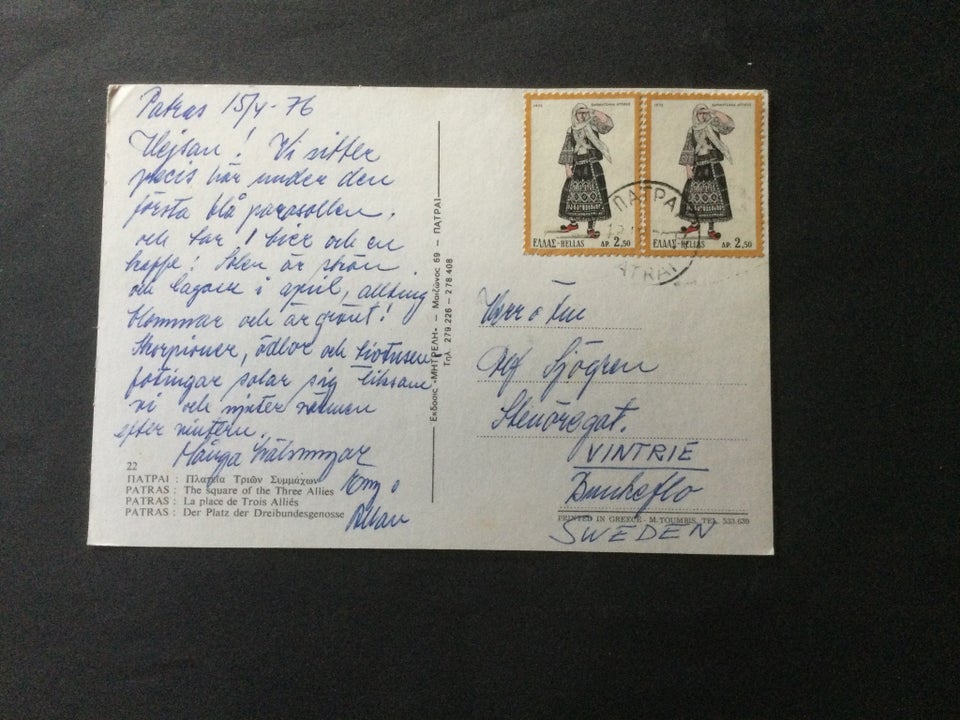 Patras 15/4-76
Hejsan! Vi sitter
precis här under den
första blå parasollen.
och tar 1 bier och en
kaffe! Solen är skön
och lagom i april, allting
blommar och är grönt!
Skorpioner, ödlor och tiotusen
fotingar solar sig liksom
vi och njuter värmen
efter vintern.
Många hälsningar
Allan
22
ΠΑΤΡΑΙ : Πλατεῖα Τριῶν Συμμάχων
PATRAS : The square of the Three Allies
PATRAS : La place de Trois Alliés
PATRAS : Der Platz der Dreibundesgenosse
Ἐκδοσις «ΜΗΤΡΕΛΗ» — Μαιζῶνος 69 – ΠΑΤΡΑΙ
Τηλ. 279.226 – 278.408
1972
ΕΛΛΑΣ-HELLAS ΔΡ. 2,50
1972
ΕΛΛΑΣ-HELLAS ΔΡ. 2,50
ΠΑΤΡΑΙ
PATRAI
Herr o Fru
Alf Sjögren
Stenöregat.
VINTRIE
Bunkeflo
PRINTED IN GREECE - M. TOUMBIS, TEL. 533.630
SWEDEN